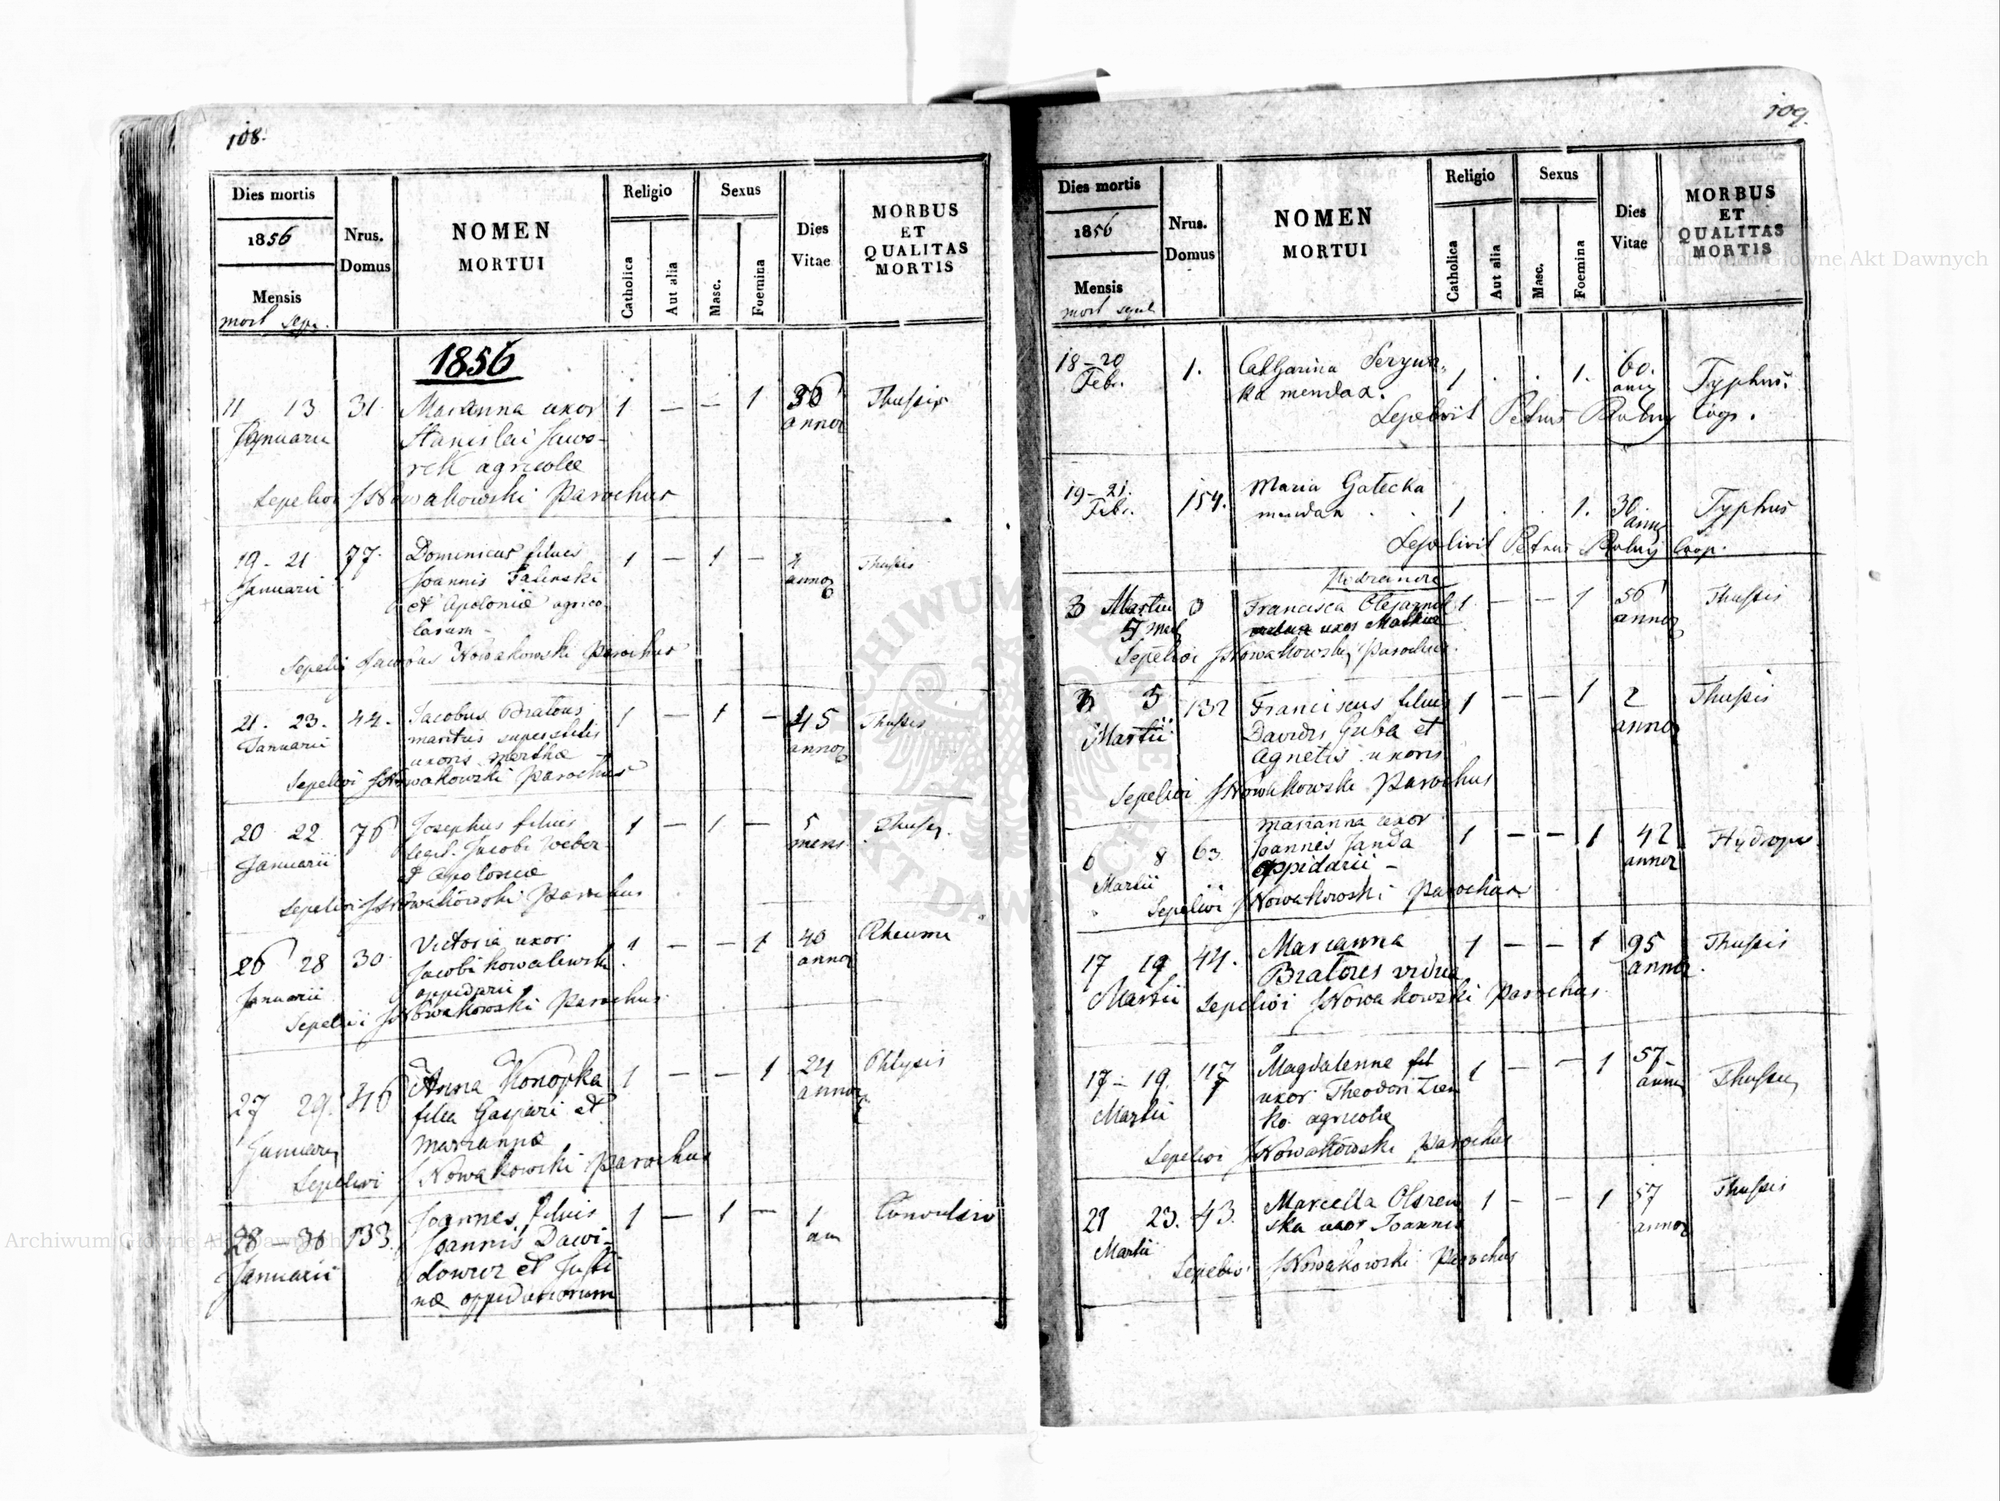 108.
Dies mortis
1856
Mensis
mort sepe.
Nrus.
Domus
NOMEN
MORTUI
Religio
Catholica
Aut alia
Sexus
Masc.
Foemina
Dies
Vitae
MORBUS
ET
QUALITAS
MORTIS
1856
11 13 31 Marianna uxor 1 — — 1 36 Thussis
Januarii Stanislai Jawo- annor
rek agricolae
Sepelivi JNowakowski Parochus
19 - 21 77. Dominicus filius 1 — 1 — Thussis
Januarii Joannis Falinski annor
et Apoloniae agrico-
larum
Sepelivi Jacobus Nowakowski Parochus
21. 23. 44. Jacobus Bratous 1 — 1 — 45 Thussis
Januarii maritus superstitis annor
uxoris Marthae
Sepelivi JNowakowski Parochus
20 22 76 Josephus filius 1 — 1 — 5 Thussis
Januarii legit. Jacobi Weber mens
et Apoloniae
Sepelivi JNowakowski Parochus
26 28 30 Victoria uxor 1 — — 1 40 Rheuma
Januarii Jacobi Kowalewski annor
oppidarii
Sepelivi JNowakowski Parochus
27 29. 46 Anna Konopka 1 — — 1 24 Phtysis
Januarii filia Gaspari et annor
Mariannae
Sepelivi JNowakowski Parochus
28 — 30 133. Joannes filius 1 — 1 — 1 Convulsio
Januarii Joannis Dawi- an
dowicz et Justi
nae oppidariorum
109.
Dies mortis
1856
Mensis
mort sepul.
Nrus.
Domus
NOMEN
MORTUI
Religio
Catholica
Aut alia
Sexus
Masc.
Foemina
Dies
Vitae
MORBUS
ET
QUALITAS
MORTIS
18-20 1. Catharina 1 . . 1. 60. Typhus.
Febr. mendax.
Sepelivit Petrus
19-21. 154. Maria Gatecka 1 . . 1. 30 Typhus
Febr. mendax
Sepelivit Petrus Coop.
3 Martii 3 Francisca 1 — — 1 56 Thussis
5 uxor annor
Sepelivi JNowakowski Parochus.
3 5 132 Franciscus filius 1 — — 1 2 Thussis
Martii Davidis Guba et annor
Agnetis uxoris
Sepelivi JNowakowski Parochus
Marianna uxor
6 8 63. Joannis Janda 1 — — 1 42 Hydrops
Martii oppidarii - annor
Sepelivi JNowakowski Parochus
17 19 44. Marianna 1 — — 1 95 Thussis
Martii Bratores vidua annor.
Sepelivi JNowakowski Parochus.
17 — 19. 117 Magdalenne fil 1 — — 1 57 Thussis
Martii uxor Theodori
ko. agricolae
Sepelivi JNowakowski Parochus
21 23. 43. Marcella 1 — — 1 57 Thussis
Martii ska uxor Joannis annor
Sepelivi JNowakowski Parochus
Archiwum Główne Akt Dawnych
Archiwum Główne Akt Dawnych
ARCHIWUM GŁÓWNE AKT DAWNYCH